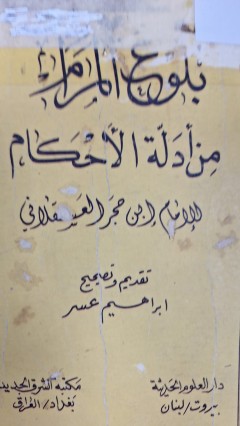 بلوغ المرام
من أدلة الأحكام
للإمام ابن حجر العسقلاني
تقديم وتصحيح
ابراهيم عسر
دار العلوم الحديثة
بيروت/لبنان
مكتبة الشرق الجديد
بغداد/العراق